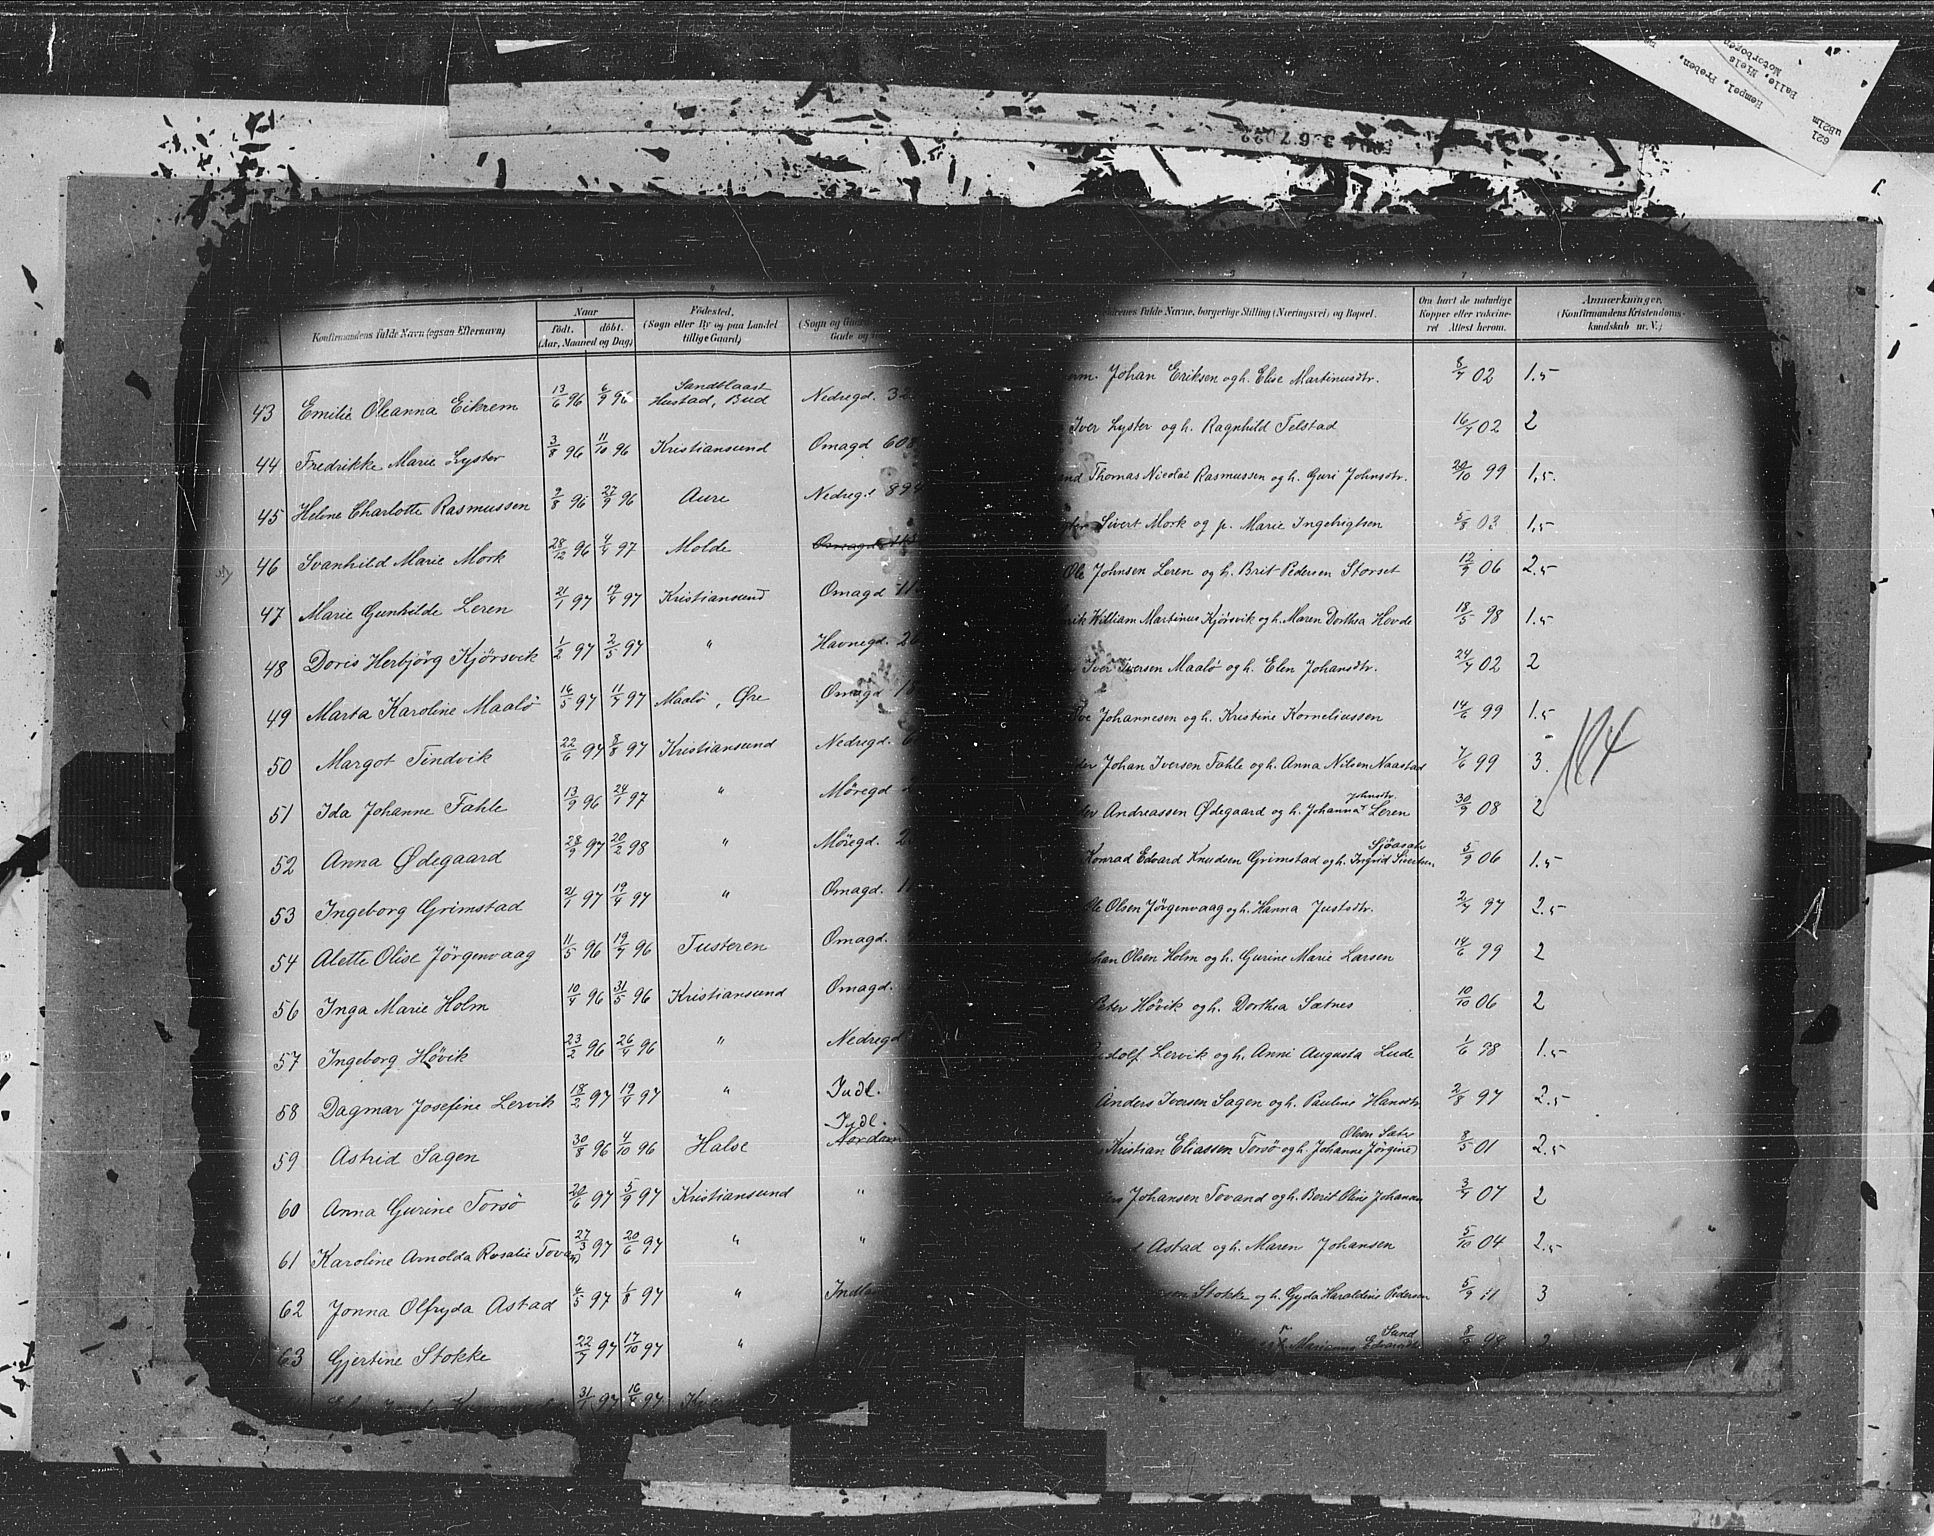 Hempel, Preben.
Balle, Niels
Motorbogen
621
uB21m
2 3 4
Konfirmandens fulde Navn (ogsaa Efternavn)
Naar
født. döbt.
(Aar, Maaned og Dag)
Födested,
(Sogn eller By og paa Landet
tillige Gaard)
(Sogn og
Gade og
43 Emilie Oleanna Eikrem 13/6 96 6/9 96 Sandblaast Hustad, Bud Nedregd. 32
44 Fredrikke Marie Lyster 3/8 96 11/10 96 Kristiansund Omagd 608
45 Helene Charlotte Rasmussen 9/8 96 27/9 96 Aure Nedregt 894
46 Svanhild Marie Mork 28/12 96 4/4 97 Molde
47 Marie Gunhilde Leren 21/1 97 19/4 97 Kristiansund Omagd 11
48 Doris Herbjörg Kjörsvik 1/2 97 2/5 97 " Havnegd. 26
49 Marta Karoline Maalö 16/5 97 11/7 97 Maalö, Øre Omagd 18
50 Margot Tindvik 22/6 97 8/8 97 Kristiansund Nedregd. 6
51 Ida Johanne Fahle 13/9 96 24/1 97 " Möregd 2
52 Anna Ødegaard 28/9 97 20/2 98 " Möregd. 2
53 Ingeborg Grimstad 21/1 97 19/4 97 " Omagd. 11
54 Alette Olise Jörgenvaag 11/5 96 19/7 96 Tusteren Omagd.
56 Inga Marie Holm 10/4 96 31/5 96 Kristiansund Omagd.
57 Ingeborg Hövik 23/2 96 26/4 96 " Nedregd
58 Dagmar Josefine Lervik 18/2 97 19/4 97 " Indl.
59 Astrid Sagen 30/8 96 4/10 96 Halse Indl. Nordlan
60 Anna Gurine Torsö 20/6 97 5/9 97 Kristiansund "
61 Karoline Arnolda Rosalie Tovand 27/3 97 20/6 97 " "
62 Jonna Olfryda Astad 6/5 97 1/8 97 " Indla
63 Gjertine Stokke 22/7 97 17/10 97 "
31/1 97 16/4 97
6 7
fulde Navne, borgerlige Stilling (Næringsvei) og Bopæl.
Om havt de naturlige
Kopper eller vakcine-
ret Attest herom.
Anmærkninger,
(Konfirmandens Kristendoms-
kundskab m. V.)
Johan Eriksen og h. Elise Martinusdtr. 8/7 02 1.5
Iver Lyster og h. Ragnhild Telstad 16/7 02 2
Thomas Nicolai Rasmussen og h. Guri Johnsdtr. 20/10 99 1,5.
Sivert Mork og p. Marie Ingebrigtsen 5/8 03 1,5
Ole Johnsen Leren og h. Brit Pedersen Storset 12/9 06 2.5
William Martinus Kjörsvik og h. Maren Dorthea Hovde 18/5 98 1.5
Iver Iversen Maalö og h. Elen Johansdtr. 24/7 02 2
Johannesen og h. Kristine Korneliussen 14/6 99 1.5
Johan Iversen Fahle og h. Anna Nilsen Naastad 7/6 99 3.
Andreassen Ødegaard og h. Johanna Johnsdtr. Leren 30/9 08 2
Konrad Edvard Knudsen Grimstad og h. Ingrid Sivertsen 5/9 06 1.5
Ole Olsen Jörgenvaag og h. Hanna Justsdtr. 2/7 97 2.5
Johan Olsen Holm og h. Gurine Marie Larsen 14/6 99 2
Peter Hövik og h. Dorthea Sætnes 10/10 06 2
Rudolf Lervik og h. Anni Augusta Lude 1/6 98 1.5
Anders Iversen Sagen og h. Pauline Hansdtr. 2/8 97 2.5
Kristian Eliassen Torsö og h. Johanne Jörgine Olsen 8/5 01 2.5
Johansen Tovand og h. Berit Oline Johannes 3/7 07 2
Astad og h. Maren Johansen 5/10 04 2.5
Stokke og h. Gyda Haraldine Pedersen 5/9 11 3
Marianne Sand 8/9 98 2